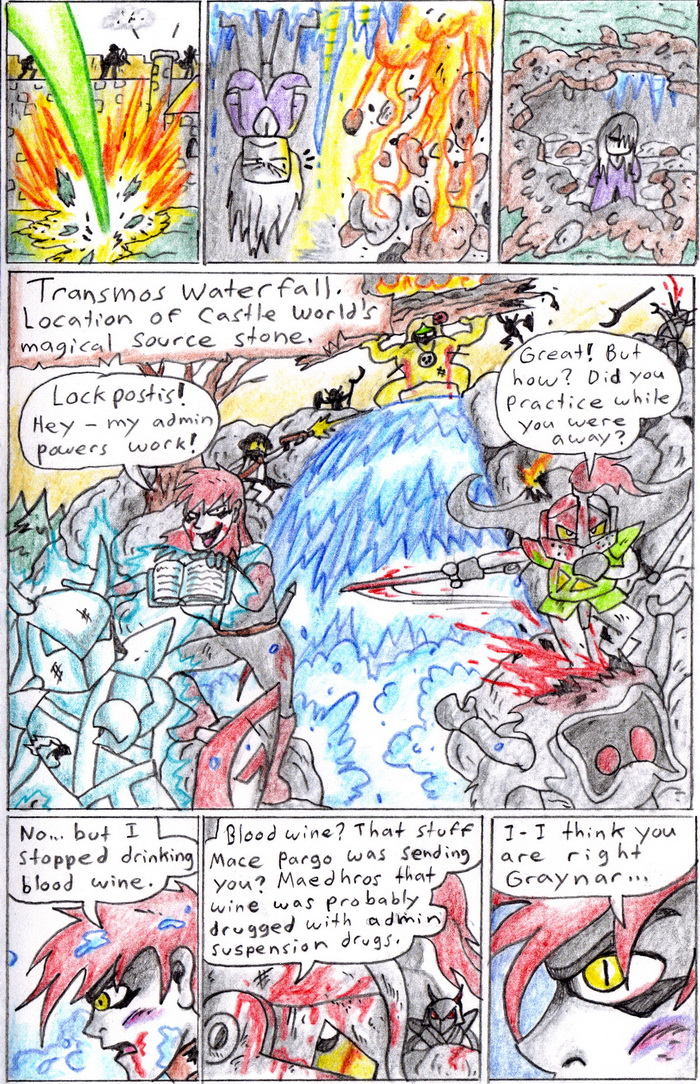 Transmos Waterfall.
Location of Castle World's
magical source stone.
Lockpostis!
Hey - my admin
powers work!
Great! But
how? Did you
practice while
you were
away?
No... but I
stopped drinking
blood wine.
Blood wine? That stuff
Mace Pargo was sending
you? Maedhros that
wine was probably
drugged with admin
suspension drugs.
I-I think you
are right
Graynar...